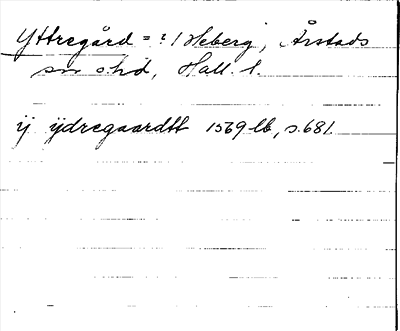 Yttregård = ? i Heberg, Årstads
sn o. hd, Hall. l.
ij ÿdregaardtt 1569 lb, s. 681.